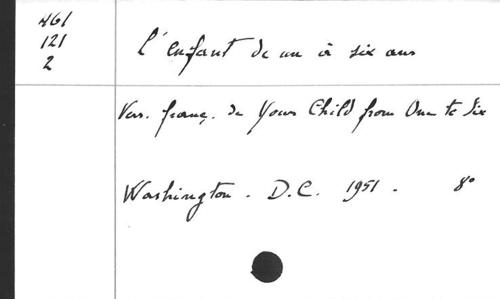 461
121
2
l'enfant de un à six ans
Vers. franç. de Your Child from One to Six
Washington. D.C. 1951. 8°